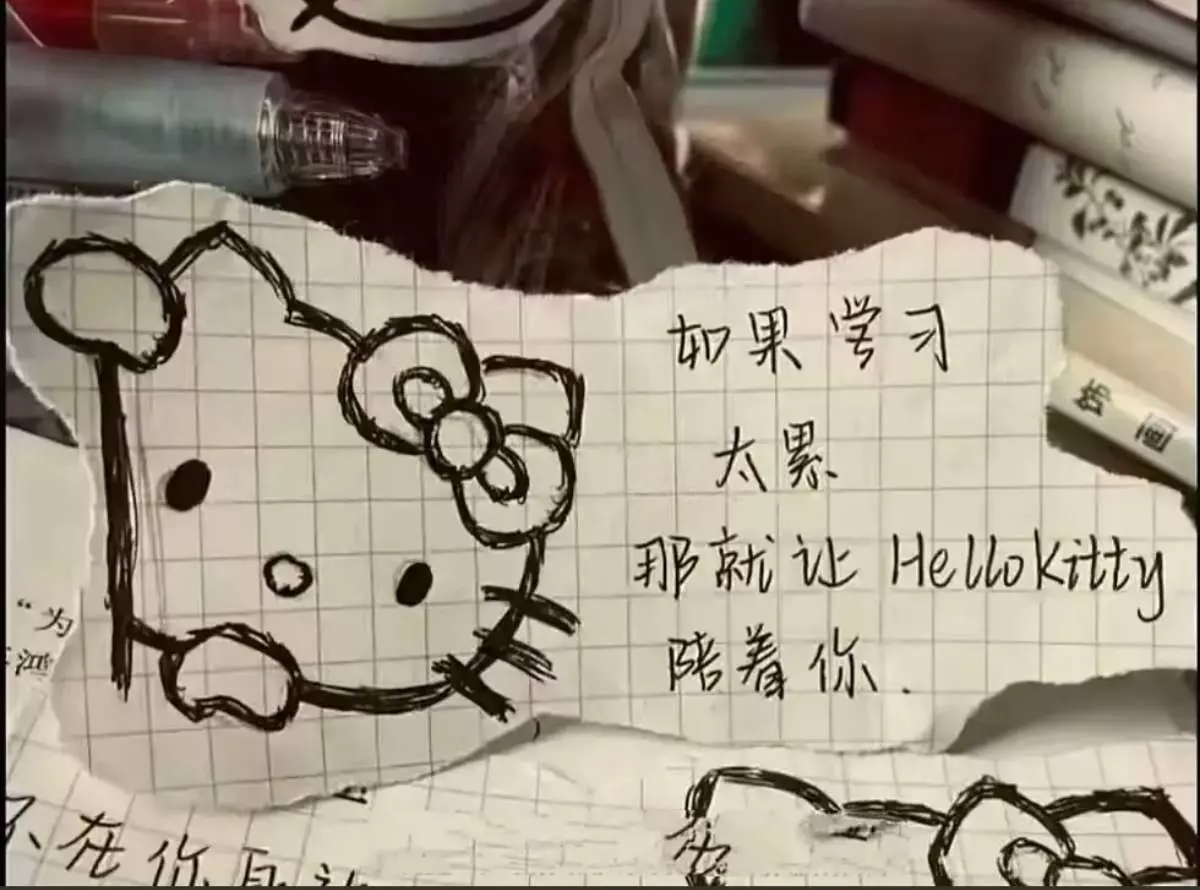 如果学习
太累
那就让 HelloKitty
陪着你.
饰画
"为
不在你身